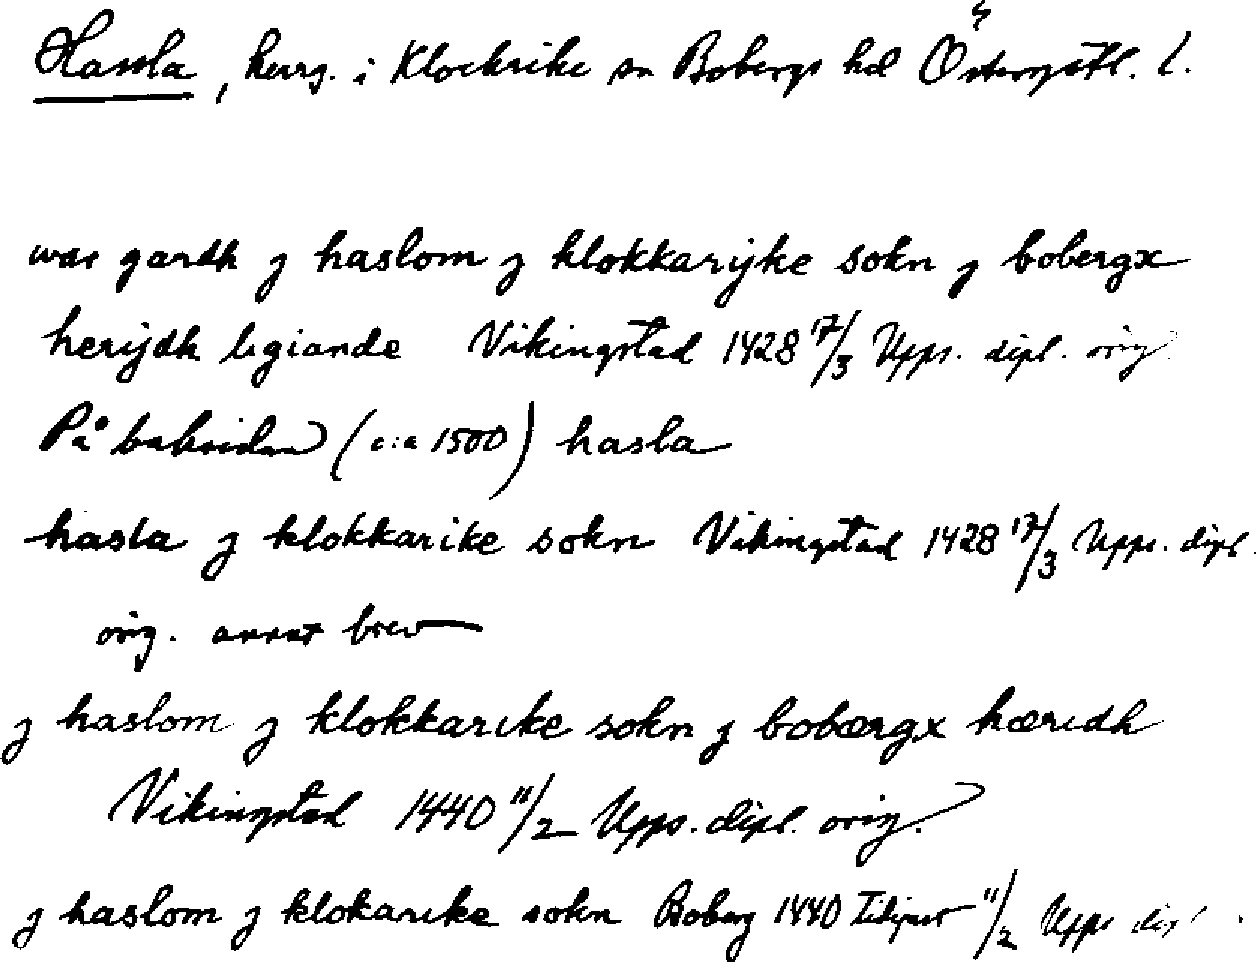 Hassla, herrg. i Klockrike sn Bobergs hd Östergötl. l.
war gardh j haslom j klokkarijke sokn j bobergx
herijdh ligiande Vikingstad 1428 17/3 Upps. dipl. orig
På baksidan (c:a 1500) hasla
hasla j klokkarike sokn Vikingstad 1428 17/3 Upps. dipl.
orig. annat brev
j haslom j klokkarike sokn j bobærgx hæridh
Vikingstad 1440 11/2 Upps. dipl. orig.
j haslom j klokarike sokn Boberg 1440 11/2 Upps dipl.